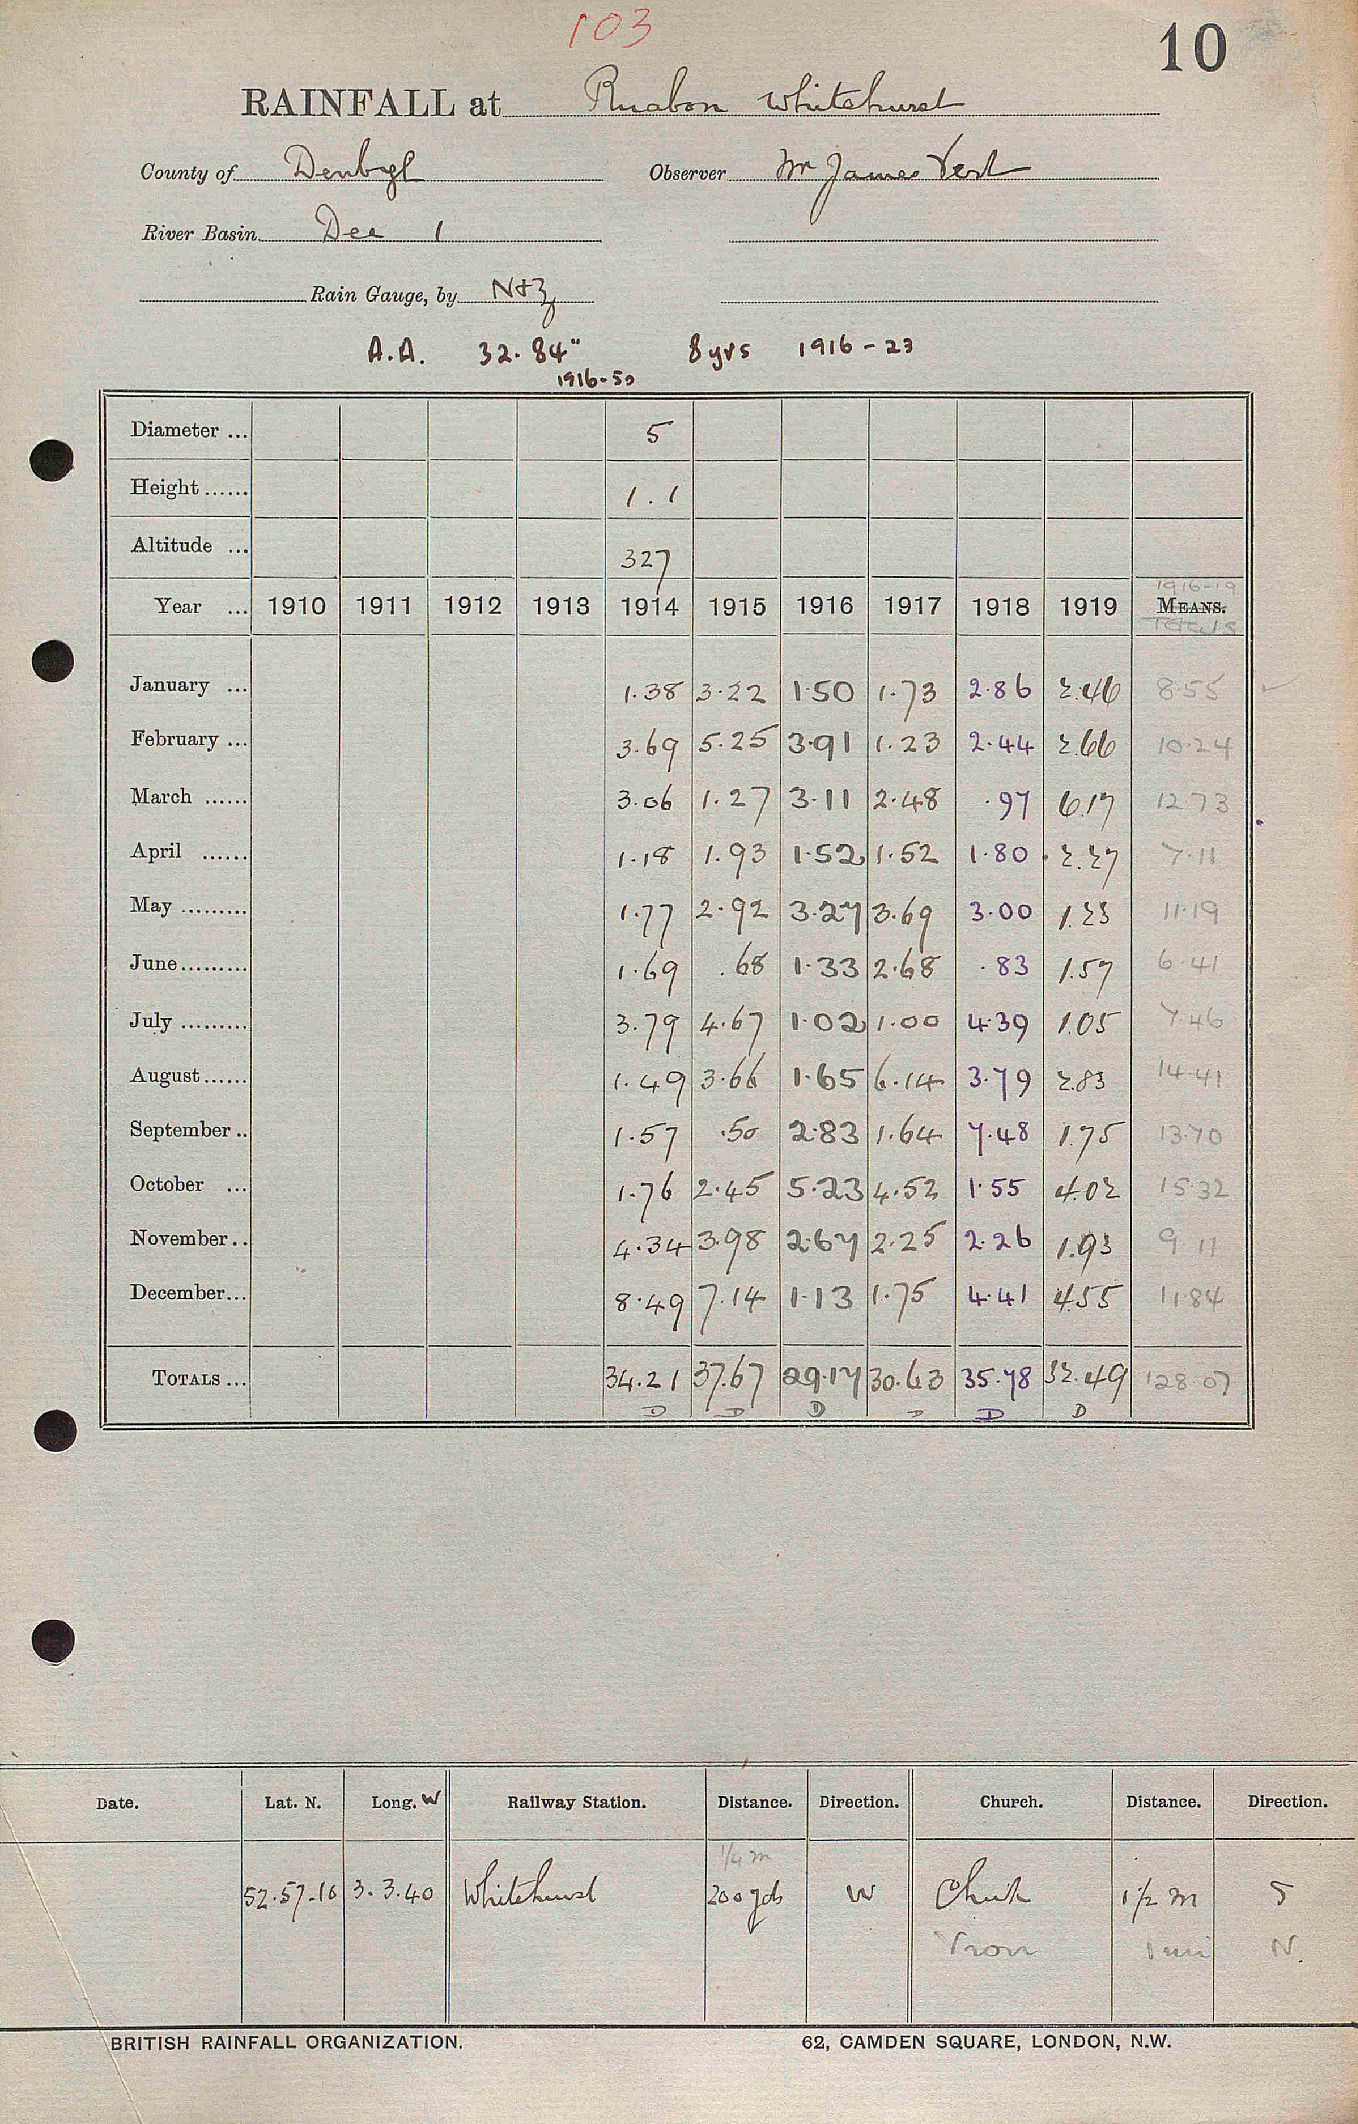 103
10
RAINFALL at Ruabon Whitehurst
County of Denbigh Observer Mr James
River Basin Dee 1
Rain Gauge, by N+Z
A.A. 32.84" 8 yrs 1916-23
1916-50
Diameter ... 5
Height ...... 1.1
Altitude ... 327
1916-19
Year ... 1910 1911 1912 1913 1914 1915 1916 1917 1918 1919 MEANS.
Totals
January ... 1.38 3.22 1.50 1.73 2.86 2.46 8.55
February ... 3.69 5.25 3.91 1.23 2.44 2.66 10.24
March ...... 3.06 1.27 3.11 2.48 .97 6.17 12.73
April ...... 1.18 1.93 1.52 1.52 1.80 2.27 7.11
May ......... 1.77 2.92 3.27 3.69 3.00 1.23 11.19
June ......... 1.69 .68 1.33 2.68 .83 1.57 6.41
July ......... 3.79 4.67 1.02 1.00 4.39 1.05 7.46
August ...... 1.49 3.66 1.65 6.14 3.79 2.83 14.41
September .. 1.57 .50 2.83 1.64 7.48 1.75 13.70
October ... 1.76 2.45 5.23 4.52 1.55 4.02 15.32
November .. 4.34 3.98 2.67 2.25 2.26 1.93 9.11
December ... 8.49 7.14 1.13 1.75 4.41 4.55 11.84
TOTALS ... 34.21 37.67 29.17 30.63 35.78 32.49 128.07
D D D D D D
Date. Lat. N. Long. W Railway Station. Distance. Direction. Church. Distance. Direction.
1/4 m
52.57.16 3.3.40 Whitehurst 200 yds W Chirk 1 1/2 m S
1 mi N
BRITISH RAINFALL ORGANIZATION. 62, CAMDEN SQUARE, LONDON, N.W.